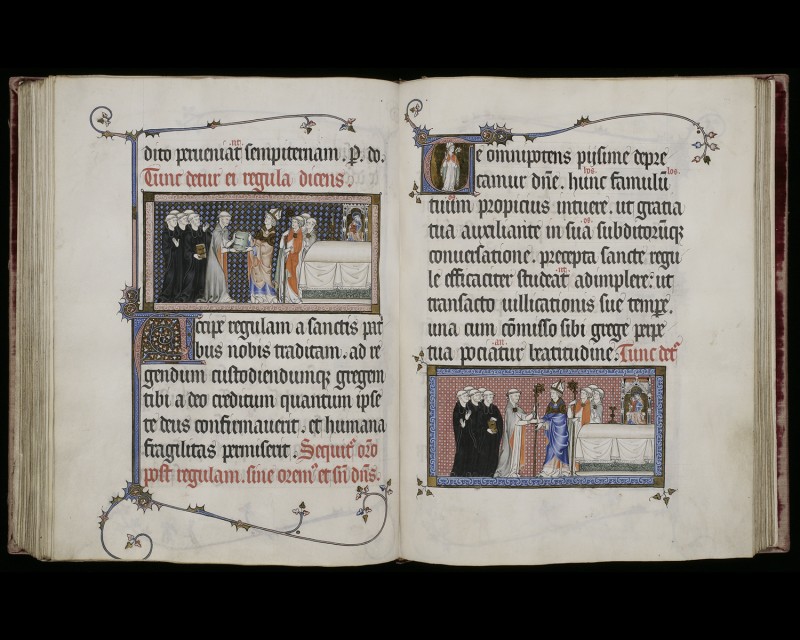 dito perueniat sempiternam. P. do.
Tunc detur ei regula dicens.
Accipe regulam a sanctis pat
bus nobis traditam. ad re
gendum custodiendumque gregem
tibi a deo creditum quantum ipse
te deus confirmauerit. et humana
fragilitas permiserit. Sequit᷑ oro
post regulam. sine orem᷒ et sū dn̄s.
Te omnipotens pijsime depre
camur dn̄e. hunc famulū
tuum propicius intuere. ut gratia
tua auxiliante in sua subditorūq;
conuersatione. precepta sancte regu
le efficaciter studeat adimplere. ut
transacto uillicationis sue tempe.
una cum cōmisso sibi grege perpe
tua pociatur beatitudine. Tunc det᷑